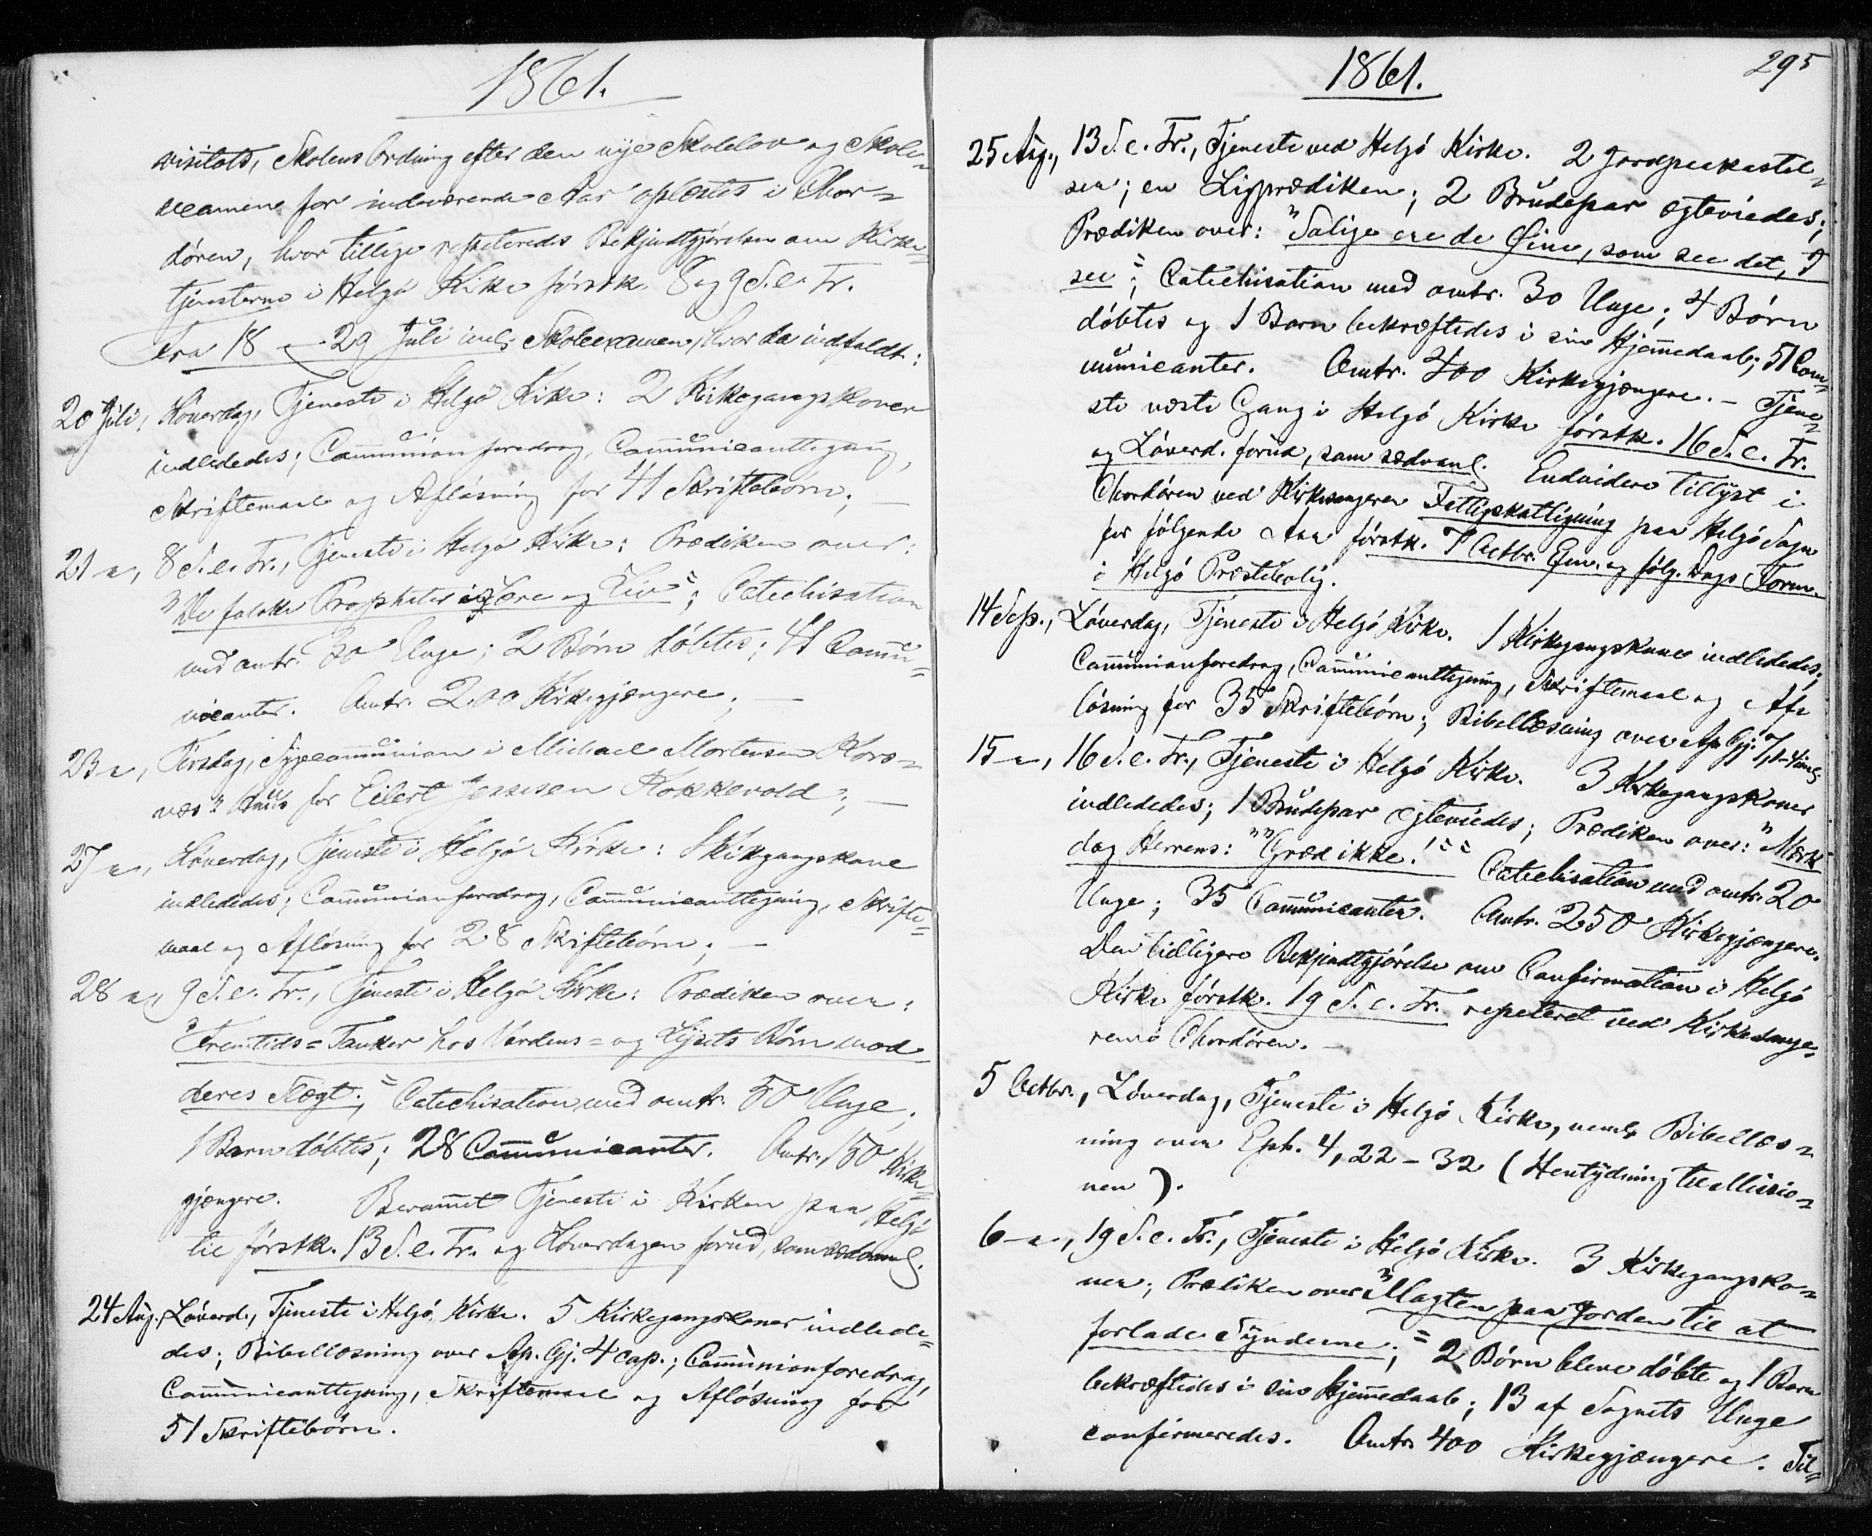 1861.
visitats, Skolens Ordning efter den nye Skolelov og Skole-
examene for indeværende Aar oplæstes i Chor-
døren, hvor tillige repeteredes Bekjendtgjørelsen om Kirke-
tjenesterne i Helgø Kirke førstk. 8 og 9 S. e. Tr.
Fra 18 – 29 Juli incl. Skoleexamen, hvor da indfaldt:
20 Juli, Løverdag, Tjeneste i Helgø Kirke: 2 Kirkegangskoner
indlededes; Communionforedrag, Communicanttegning,
Skriftemaal og Afløsning for 41 Skriftebørn; —
21 –, 8 S. e. Tr., Tjeneste i Helgø Kirke: Prædiken over:
"De falske Propheter i Lære og Liv"; Catechisation
med omtr. 30 Unge; 2 Børn døbtes; 41 Commu-
nicanter. Omtr. 200 Kirkegjængere; —
23 –, Tirsdag, Sygecommunion i Michael Mortensen Kors-
næs's Huus for Eilert Jenssen Kokkevold; —
27 –, Løverdag, Tjeneste i Helgø Kirke: 1 Kirkegangskone
indlededes; Communionforedrag, Communicanttegning, Skrifte-
maal og Afløsning for 28 Skriftebørn; —
28 –, 9 S. e. Tr., Tjeneste i Helgø Kirke: Prædiken over:
"Fremtids-Tanker hos Verdens- og Lysets Børn mod
deres Slægt"; Catechisation med omtr. 50 Unge;
1 Barn døbtes; 28 Communicanter. Omtr. 150 Kirke-
gjængere. Berammet Tjeneste i Kirken paa Helgø
til førstk. 13 S. e. Tr. og Løverdagen forud, som sædvanl.
24 Aug. Løverd., Tjeneste i Helgø Kirke. 5 Kirkegangskoner indlede-
des; Bibellæsning over Ap. Gj. 4 cap.; Communionforedrag,
Communicanttegning, Skriftemaal og Afløsning for
51 Skriftebørn.
1861.
295
25 Aug., 13 S. e. Tr., Tjeneste ved Helgø Kirke. 2 Jordpaakastel-
ser; en Ligprædiken; 2 Brudepar ægteviedes;
Prædiken over: "Salige ere de Øine, som see det, I
see"; Catechisation med omtr. 30 Unge; 4 Børn
døbtes og 1 Barn bekræftedes i sin Hjemmedaab; 51 Com-
municanter. Omtr. 400 Kirkegjængere. – Tjene-
ste næste Gang i Helgø Kirke førstk. 16 S. e. Tr.
og Løverd. forud, som sædvanl. Endvidere tillyst i
Chordøren ved Kirkesangeren Fattigskatligning paa Helgø Sogn
for følgende Aar førstk. 7 Octbr. Efm. og følg. Dags Form.
i Helgø Præstebolig.
14 Sep., Løverdag, Tjeneste i Helgø Kirke. 1 Kirkegangskone indlededes;
Communionforedrag, Communicanttegning, Skriftemaal og Af-
løsning for 35 Skriftebørn; Bibellæsning over Ap. Gj. 7,
15 –, 16 S. e. Tr., Tjeneste i Helgø Kirke. 3 Kirkegangskoner
indlededes; 1 Brudepar ægteviedes; Prædiken over: "Mærk
dog Herrens: ""Græd ikke!"" Catechisation med omtr. 20
Unge; 35 Communicanter. Omtr. 250 Kirkegjængere.
Den tidligere Bekjendtgjørelse om Confirmation i Helgø
Kirke førstk. 19 S. e. Tr. repeteret ved Kirkesange-
ren i Chordøren. —
5 Octbr., Løverdag, Tjeneste i Helgø Kirke, neml. Bibellæs-
ning over Eph. 4, 22 – 32 (Hentydning til Missio-
nen).
6 –, 19 S. e. Tr., Tjeneste i Helgø Kirke. 3 Kirkegangsko-
ner; Prædiken over: "Magten paa Jorden til at
forlade Synderne"; 2 Børn bleve døbte og 1 Barn
bekræftedes i sin Hjemmedaab; 13 af Sognets Unge
confirmeredes. Omtr. 400 Kirkegjængere. Til-